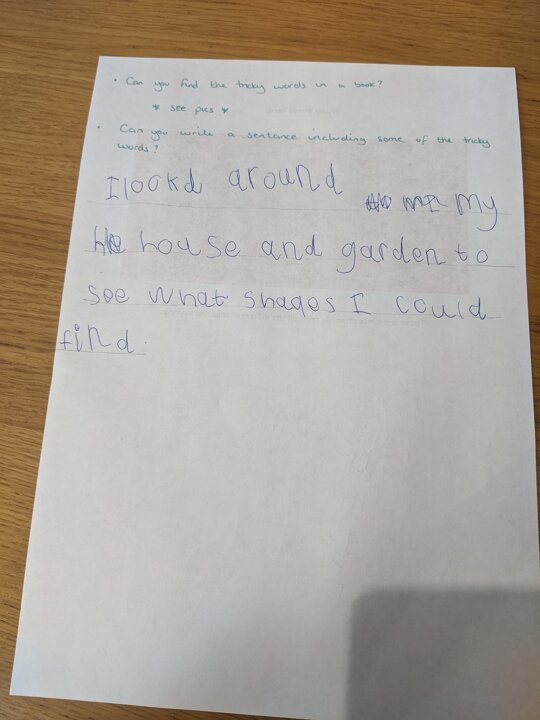 • Can you find the tricky words in a book?
* see pics *
• Can you write a sentence including some of the tricky
words?
I lookd around my
house and garden to
see what shaqes I could
find.